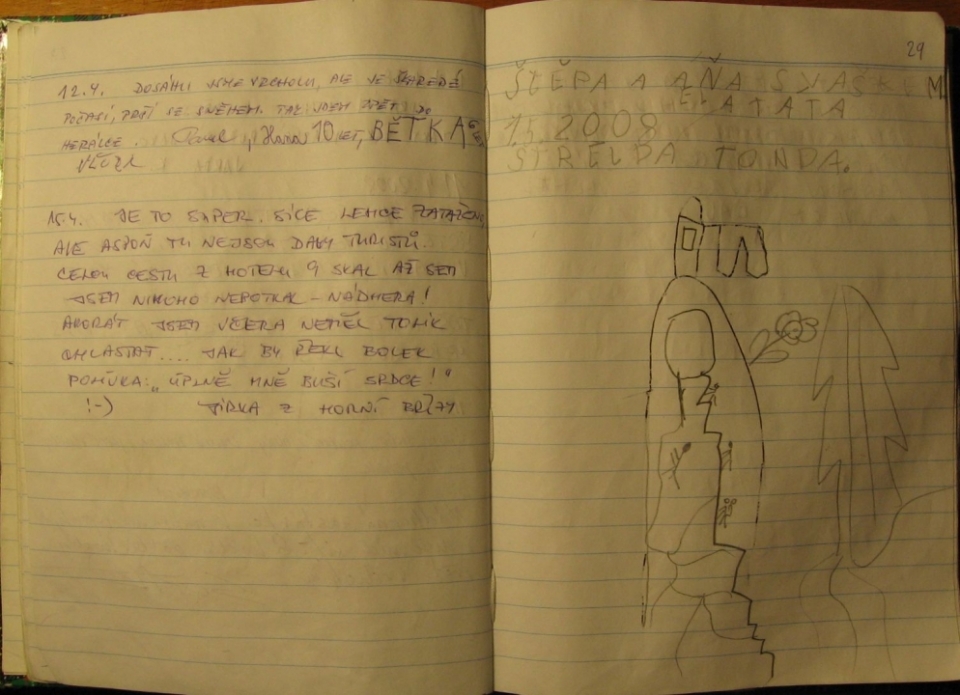 12.4. DOSÁHLI JSME VRCHOLU, ALE VE ŠKAREDÉ
POČASÍ, PRŠÍ SE SNĚHEM. TAK JDEM ZPĚT DO
HERÁLCE. Pavel, Hana 10 LET, BĚTKA
15.4. JE TO SUPER. SICE LEHCE ZATAŽENO,
ALE ASPOŇ TU NEJSOU DAVY TURISTŮ.
CELOU CESTU Z HOTELU 9 SKAL AŽ SEM
JSEM NIKOHO NEPOTKAL - NÁDHERA!
AKORÁT JSEM VČERA NEMĚL TOLIK
CHLASTAT.... JAK BY ŘEKL BOLEK
POLÍVKA: „ÚPLNĚ MNĚ BUŠÍ SRDCE!"
!-) JIRKA Z HORNÍ BŘÍZY
29
ŠTĚPA A AŇA
A TATA
1.5.2008
STREJDA TONDA.